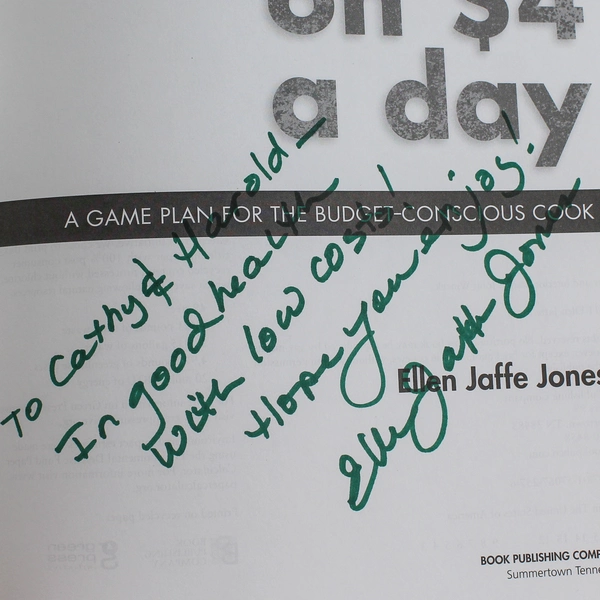 on $4
a day
A GAME PLAN FOR THE BUDGET-CONSCIOUS COOK
To Cathy & Harold —
In good health
with low costs!
Hope you enjoy!
Ellen Jaffe Jones
Ellen Jaffe Jones
BOOK PUBLISHING COMP
Summertown Tenne